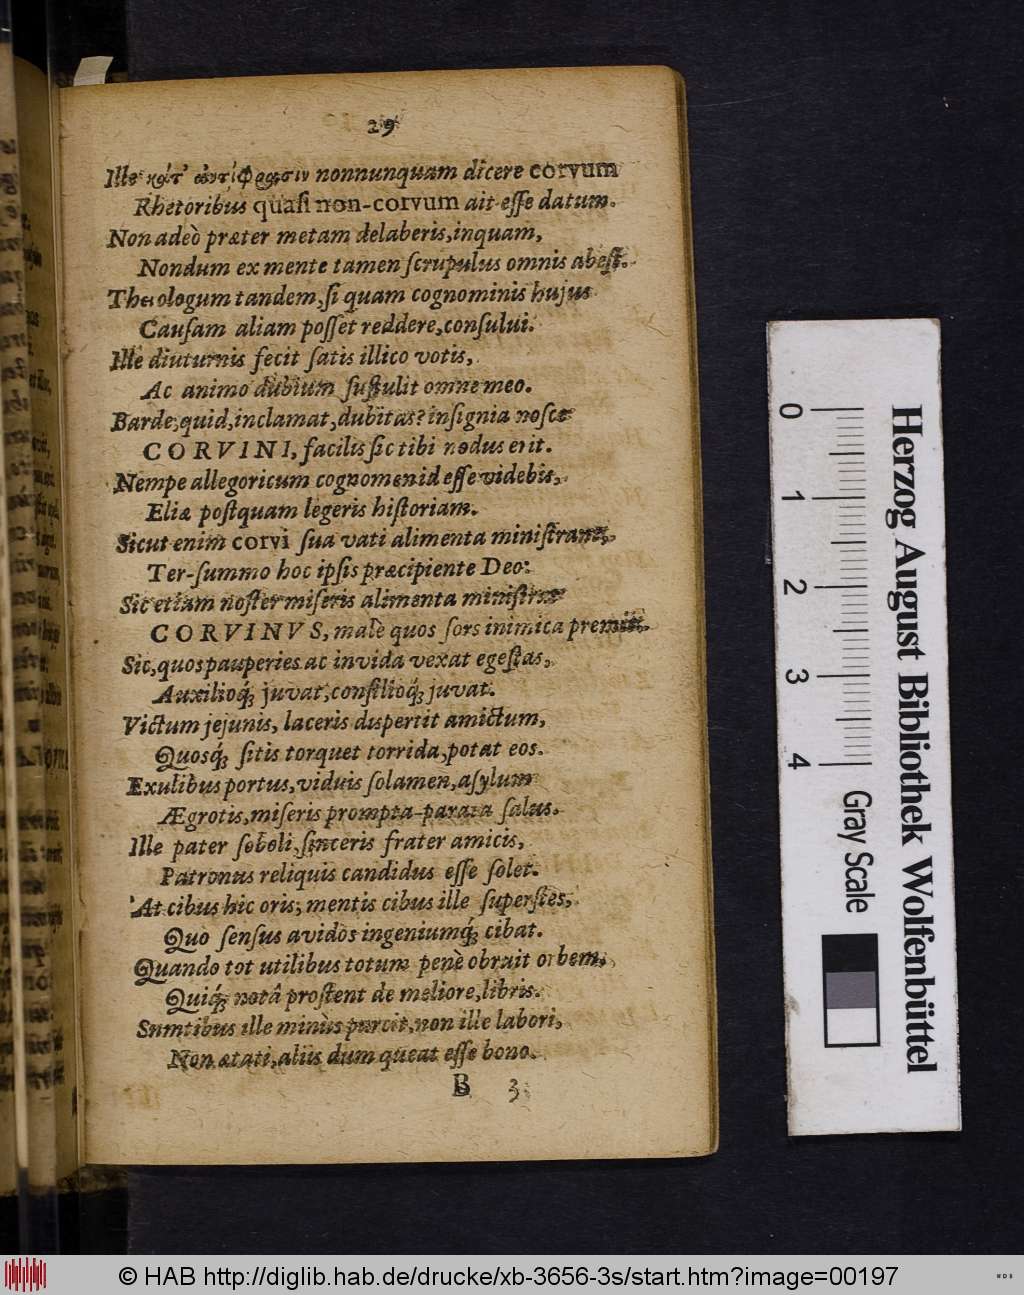 29
Ille κατ' ἀντίφρασιν nonnunquam dicere corvum
Rhetoribus quaſi non-corvum ait eſſe datum.
Non adeò præter metam delaberis, inquam,
Nondum ex mente tamen ſcrupulus omnis abeſt.
Theologum tandem, ſi quam cognominis hujus
Cauſam aliam poſſet reddere, conſului.
Ille diuturnis fecit ſatis illico votis,
Ac animo dubium ſuſtulit omne meo.
Barde, quid, inclamat, dubitas? inſignia noſce
CORVINI, facilis ſic tibi nodus erit.
Nempe allegoricum cognomen id eſſe videbis,
Eliæ poſtquam legeris hiſtoriam.
Sicut enim corvi ſua vati alimenta miniſtrant,
Ter-ſummo hoc ipſis præcipiente Deo:
Sic etiam noſter miſeris alimenta miniſtrat
CORVINVS, malè quos ſors inimica premit.
Sic, quos pauperies ac invida vexat egeſtas,
Auxilioq́; juvat, conſilioq́; juvat.
Victum jejunis, laceris diſpertit amictum,
Quosq́; ſitis torquet torrida, potat eos.
Exulibus portus, viduis ſolamen, aſylum
Ægrotis, miſeris prompta-parata ſalus.
Ille pater ſoboli, ſinceris frater amicis,
Patronus reliquis candidus eſſe ſolet.
At cibus hic oris; mentis cibus ille ſuperſtes,
Quo ſenſus avidos ingeniumq́; cibat.
Quando tot utilibus totum penè obruit orbem,
Quiq́; notâ proſtent de meliore, libris.
Sumtibus ille minùs parcit, non ille labori,
Non ætati, aliis dum queat eſſe bono.
B 3
0
1
2
3
4
Gray Scale
Herzog August Bibliothek Wolfenbüttel
© HAB http://diglib.hab.de/drucke/xb-3656-3s/start.htm?image=00197
WDB